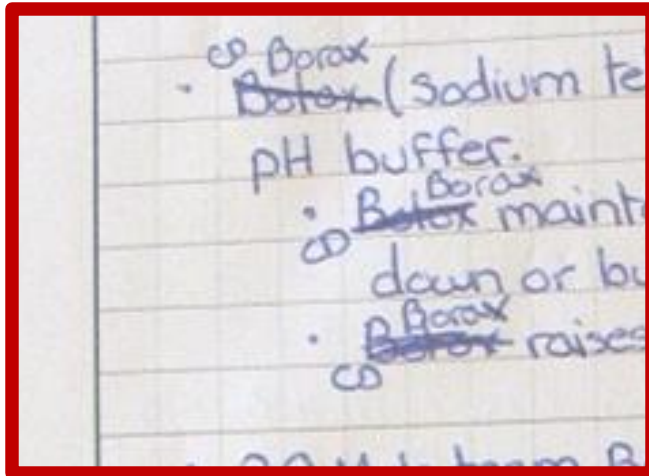 CD Borax
• Botox (sodium te
pH buffer.
Borax
• Botox mainte
CD
down or bu
Borax
• Botox raises
CD